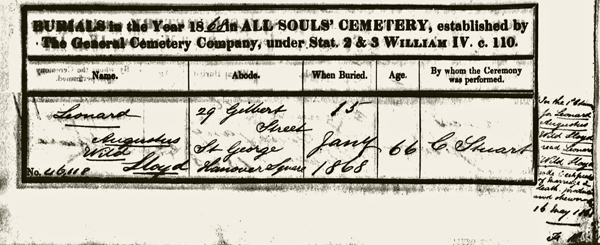 BURIALS in the Year 1868 in ALL SOULS' CEMETERY, established by
The General Cemetery Company, under Stat. 2 & 3 WILLIAM IV. c. 110.
Name. Abode. When Buried. Age. By whom the Ceremony was performed.
Leonard 29 Gilbert 15
Augustus Street Jany
Wild St George 66 C Stuart
Lloyd Hanover Square 1868
No. 46118
In the 1st
for Leonard
Augustus
Wild Lloyd
read Leonard
Wild Lloyd
death
and
16 May